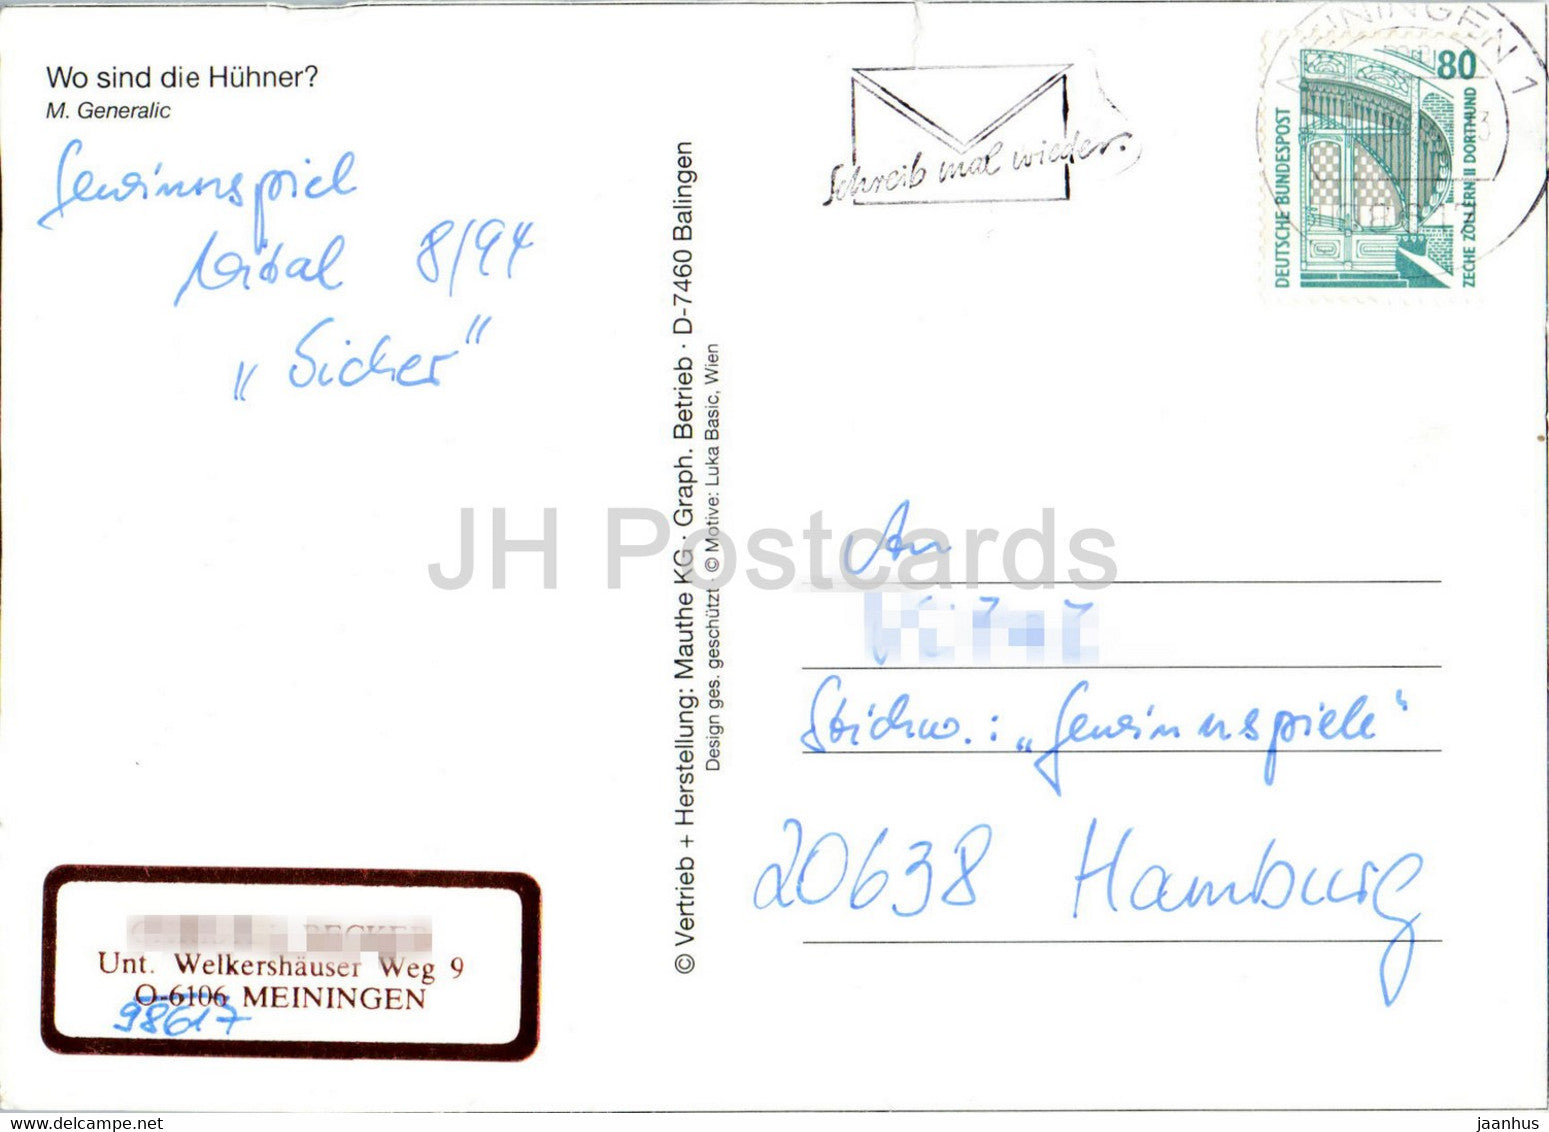 Wo sind die Hühner?
M. Generalic
Gewinnspiel
Vital 8/94
„Sicher"
Unt. Welkershäuser Weg 9
O-6106 MEININGEN
98617
© Vertrieb + Herstellung: Mauthe KG · Graph. Betrieb · D-7460 Balingen
Design ges. geschützt · © Motive: Luka Basic, Wien
Schreib mal wieder.
MEININGEN 1
80
DEUTSCHE BUNDESPOST
ZECHE ZOLLERN II DORTMUND
An
Stichw.: „Gewinnspiele"
20638 Hamburg
JH Postcards
jaanhus